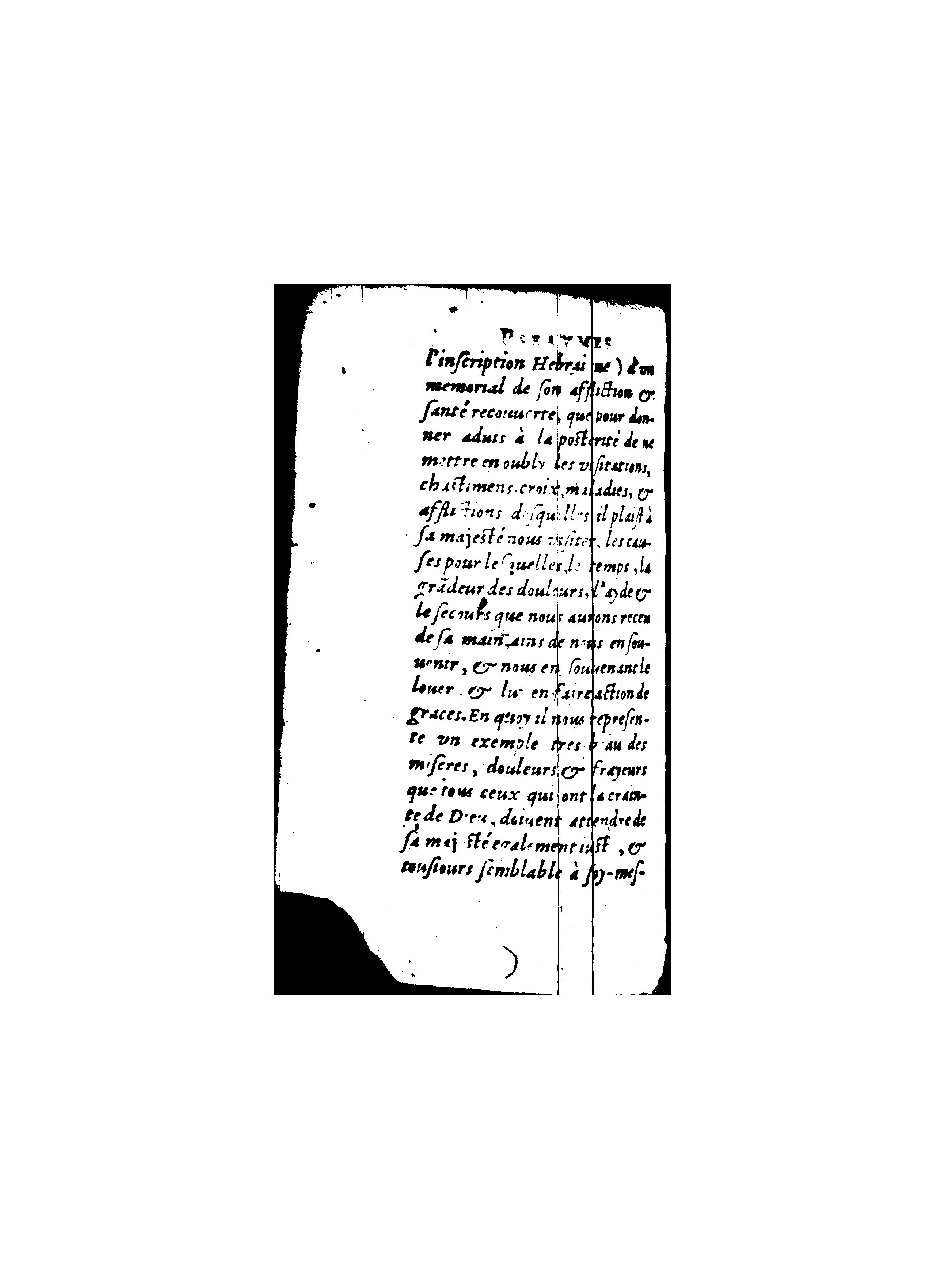 PSEAVMES
l'inſcription Hebraine ) d'vn
memorial de ſon affliction &
ſanté recouuerte, que pour don-
ner aduis à la poſterité de ne
mettre en oubly les viſitations,
chaſtimens, croix, maladies, &
afflictions deſquelles il plaiſt à
ſa majeſté nous viſiter, les cau-
ſes pour leſquelles, le temps, la
grãdeur des douleurs, l'ayde &
le ſecours que nous aurons receu
de ſa main, ains de nous en ſou-
uenir, & nous en ſouuenant le
louer & luy en faire action de
graces. En quoy il nous repreſen-
te vn exemple tres beau des
miſeres, douleurs & frayeurs
que tous ceux qui ont la crain-
te de Dieu, doiuent attendre de
ſa majeſté egalement iuſte, &
touſiours ſemblable à ſoy-meſ-